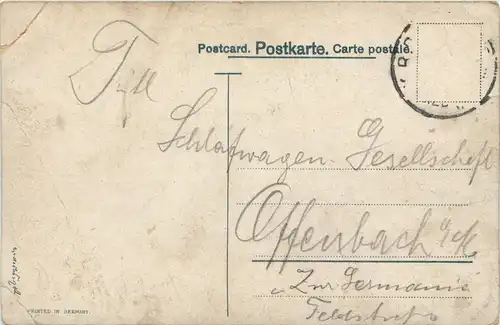 Postcard. Postkarte. Carte postale.
Till
Schlafwagen-Gesellschaft
Offenbach a/M.
"Zur Germania
PRINTED IN GERMANY